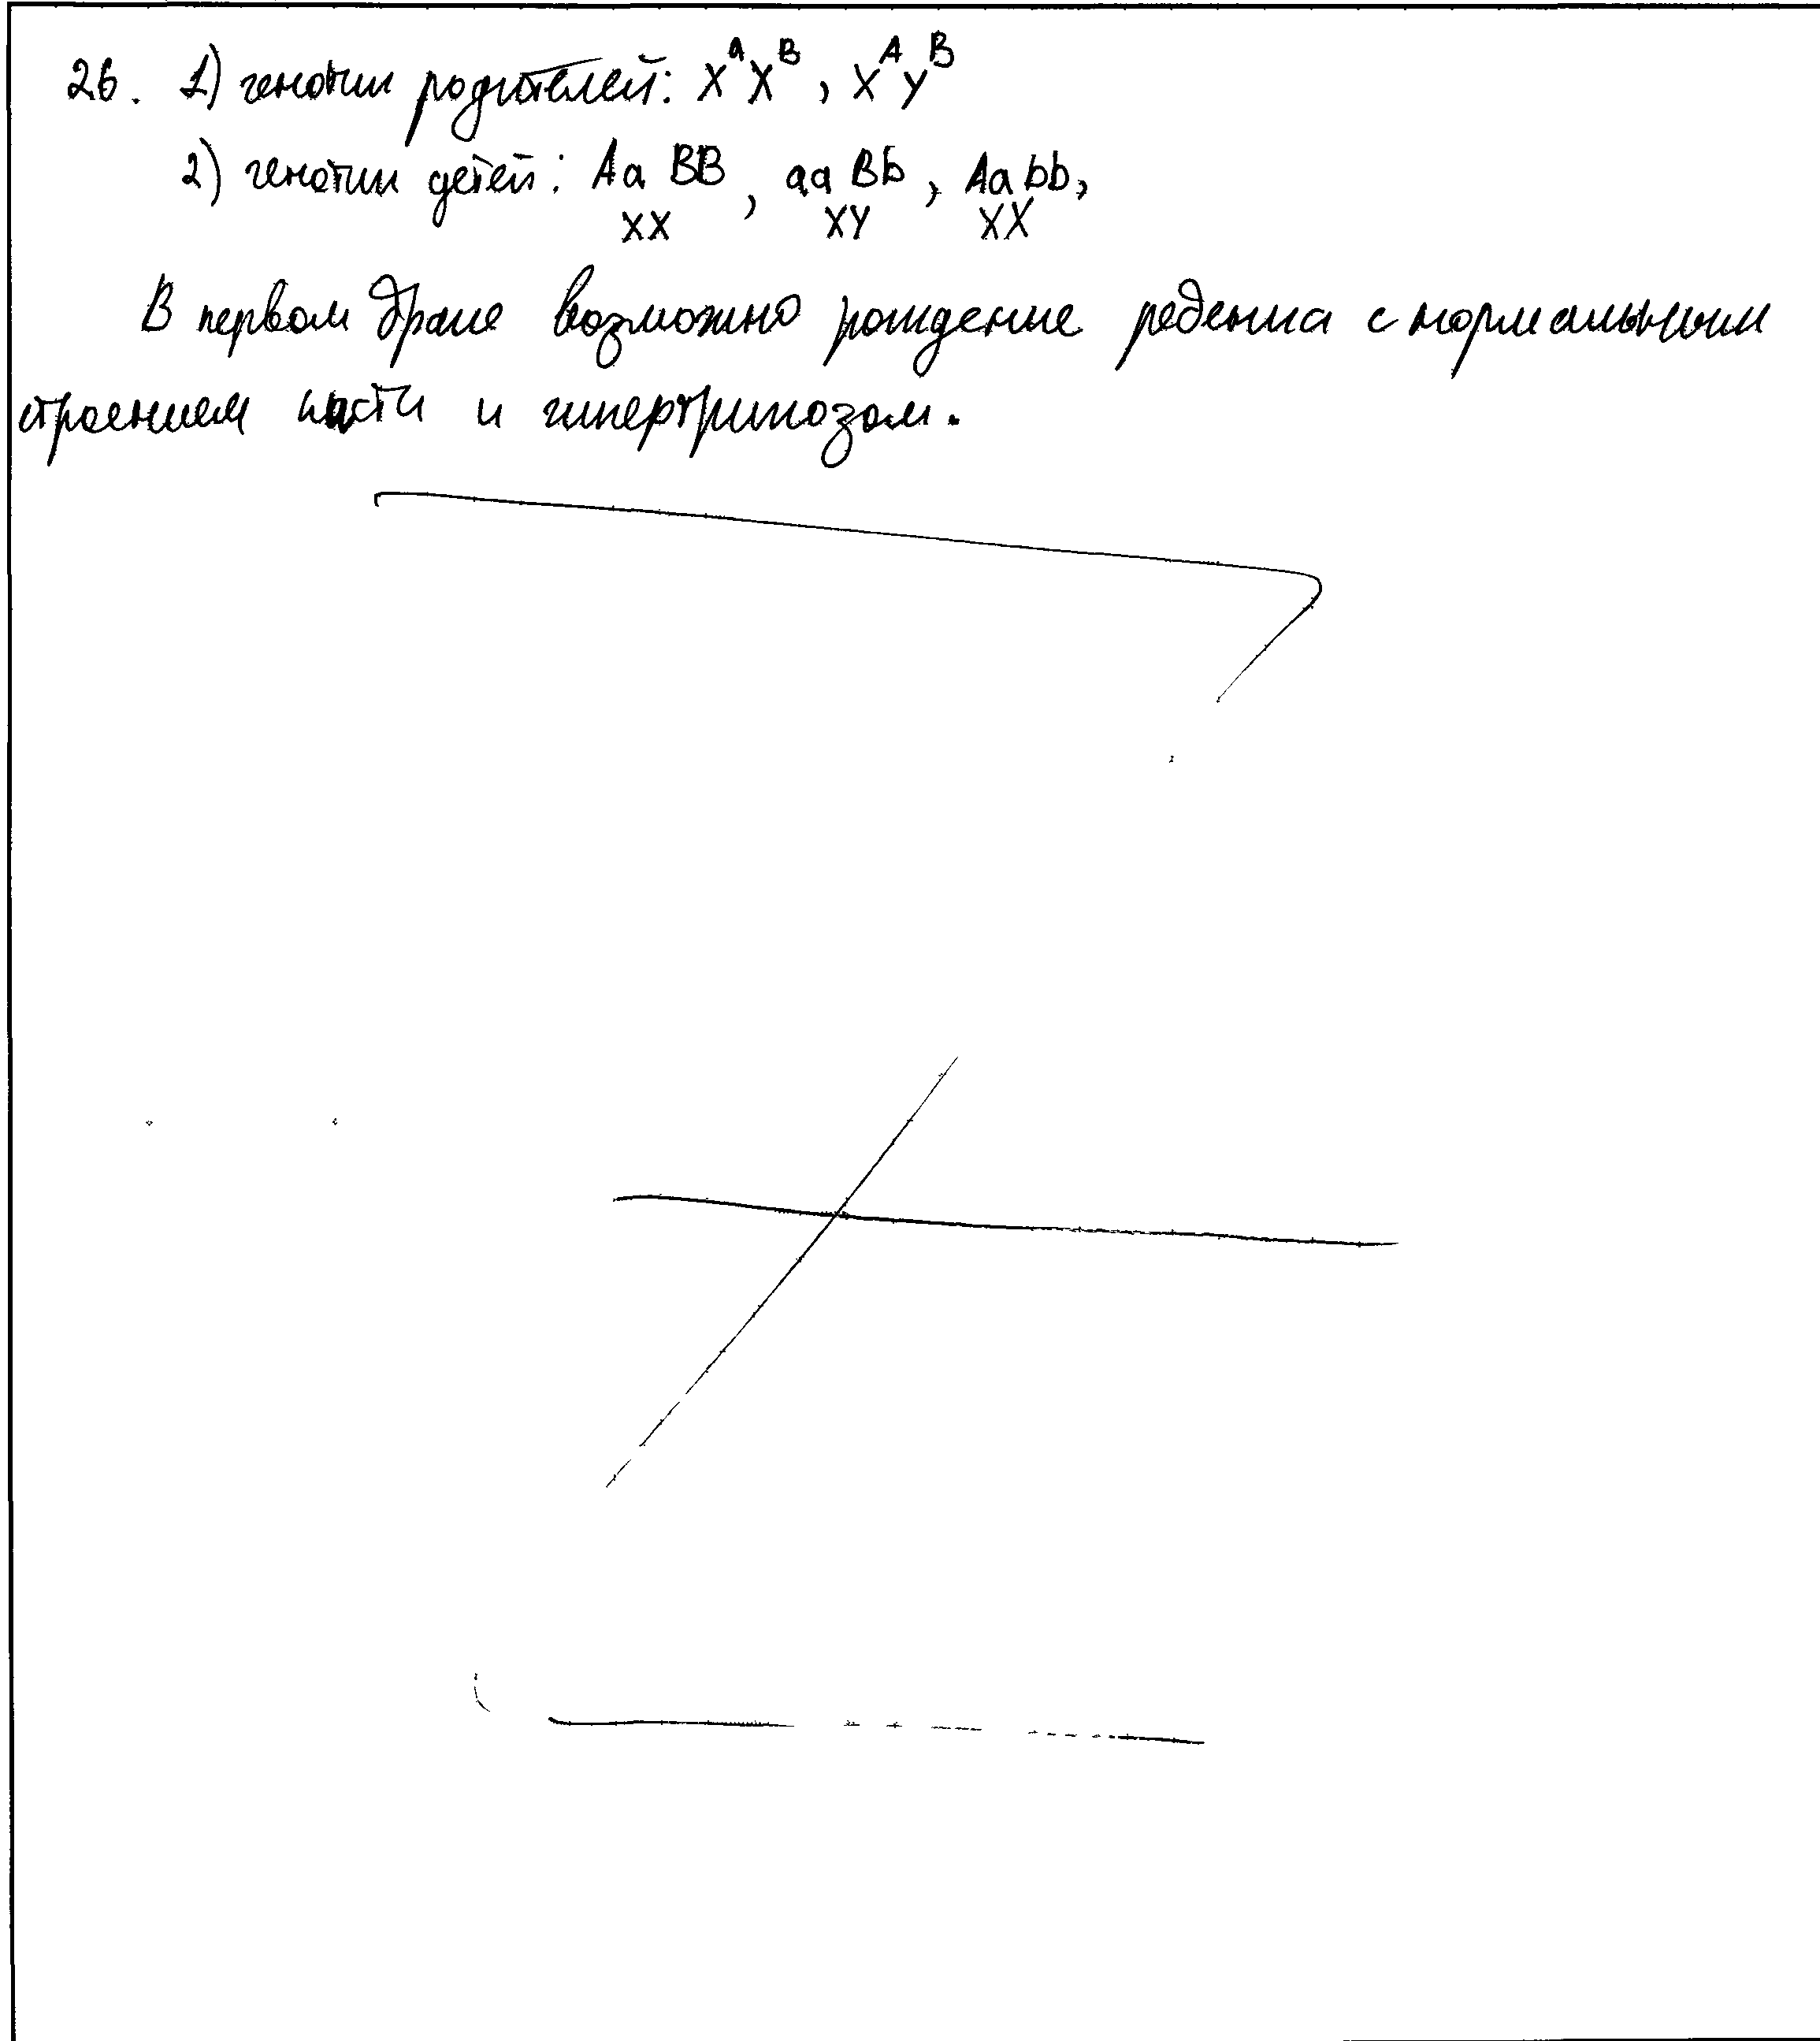 26. 1) генотип родителей: XᵃXᴮ, XᴬYᴮ
2) генотип детей: Aa BB, aa Bb, Aa bb,
XX XY XX
В первом браке возможно рождение ребенка с нормальным
строением кисти и гипертрихозом.